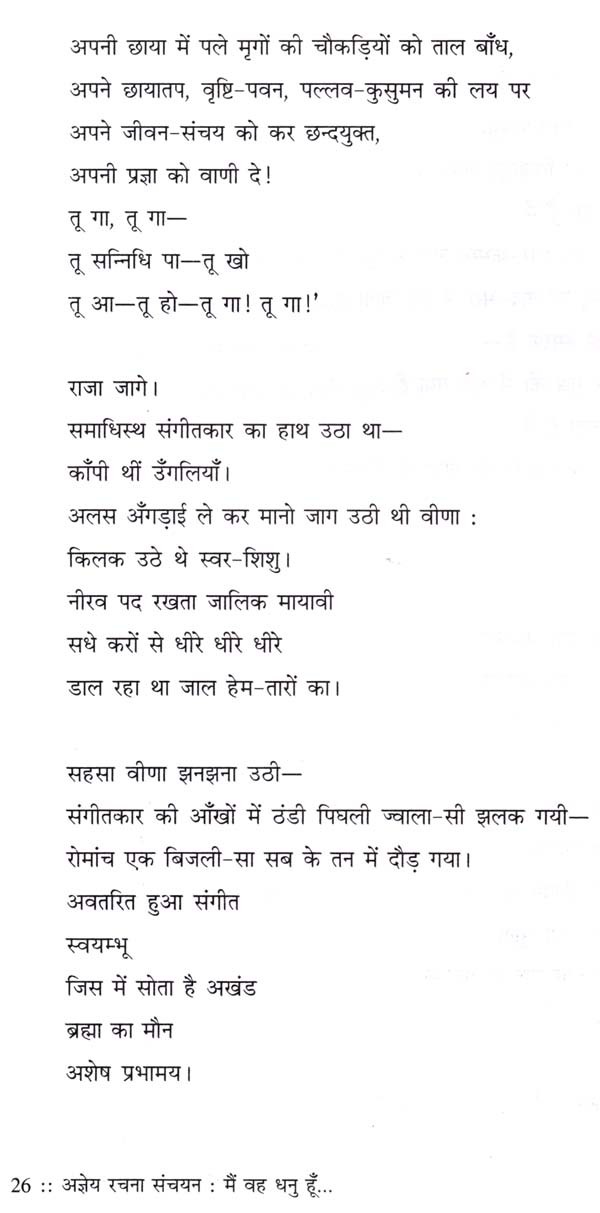 अपनी छाया में पले मृगों की चौकड़ियों को ताल बाँध,
अपने छायातप, वृष्टि-पवन, पल्लव-कुसुमन की लय पर
अपने जीवन-संचय को कर छन्दयुक्त,
अपनी प्रज्ञा को वाणी दे!
तू गा, तू गा—
तू सन्निधि पा—तू खो
तू आ—तू हो—तू गा! तू गा!'
राजा जागे।
समाधिस्थ संगीतकार का हाथ उठा था—
काँपी थीं उँगलियाँ।
अलस अँगड़ाई ले कर मानो जाग उठी थी वीणा :
किलक उठे थे स्वर-शिशु।
नीरव पद रखता जालिक मायावी
सधे करों से धीरे धीरे धीरे
डाल रहा था जाल हेम-तारों का।
सहसा वीणा झनझना उठी—
संगीतकार की आँखों में ठंडी पिघली ज्वाला-सी झलक गयी—
रोमांच एक बिजली-सा सब के तन में दौड़ गया।
अवतरित हुआ संगीत
स्वयम्भू
जिस में सोता है अखंड
ब्रह्मा का मौन
अशेष प्रभामय।
26 :: अज्ञेय रचना संचयन : मैं वह धनु हूँ...